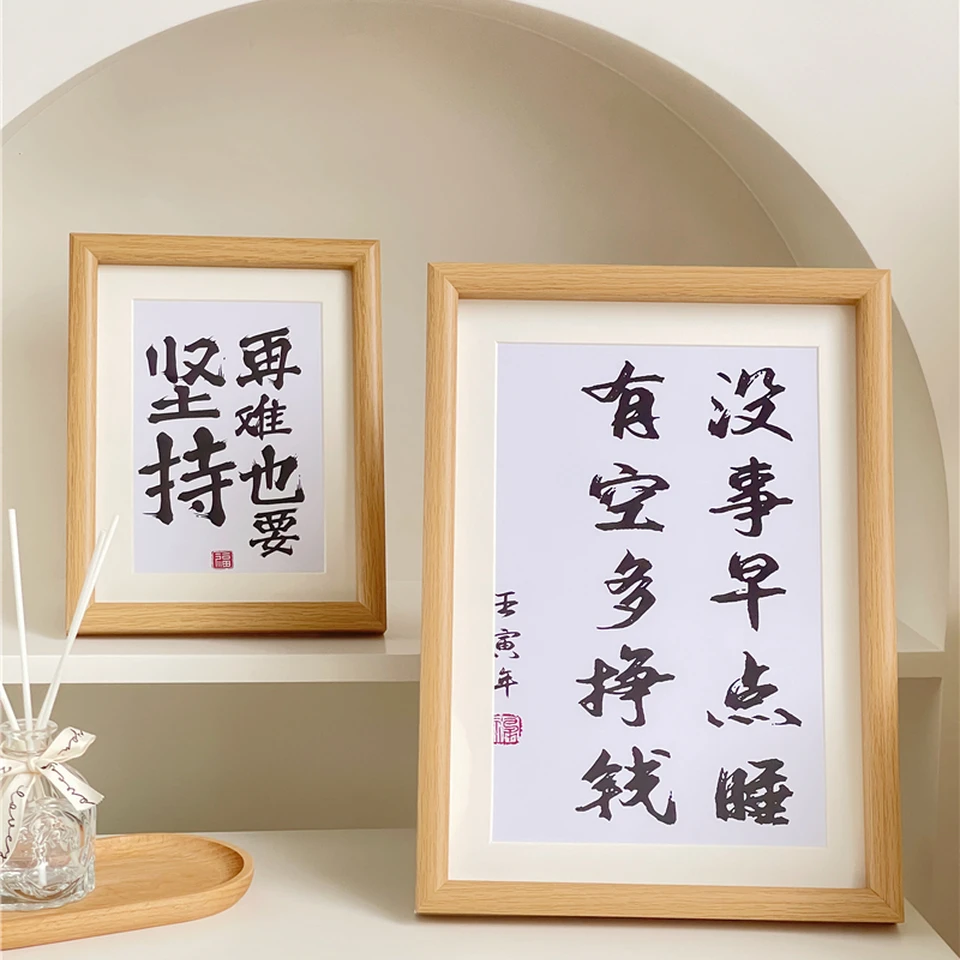 再难也要
坚持
福
没事早点睡
有空多挣钱
壬寅年
福